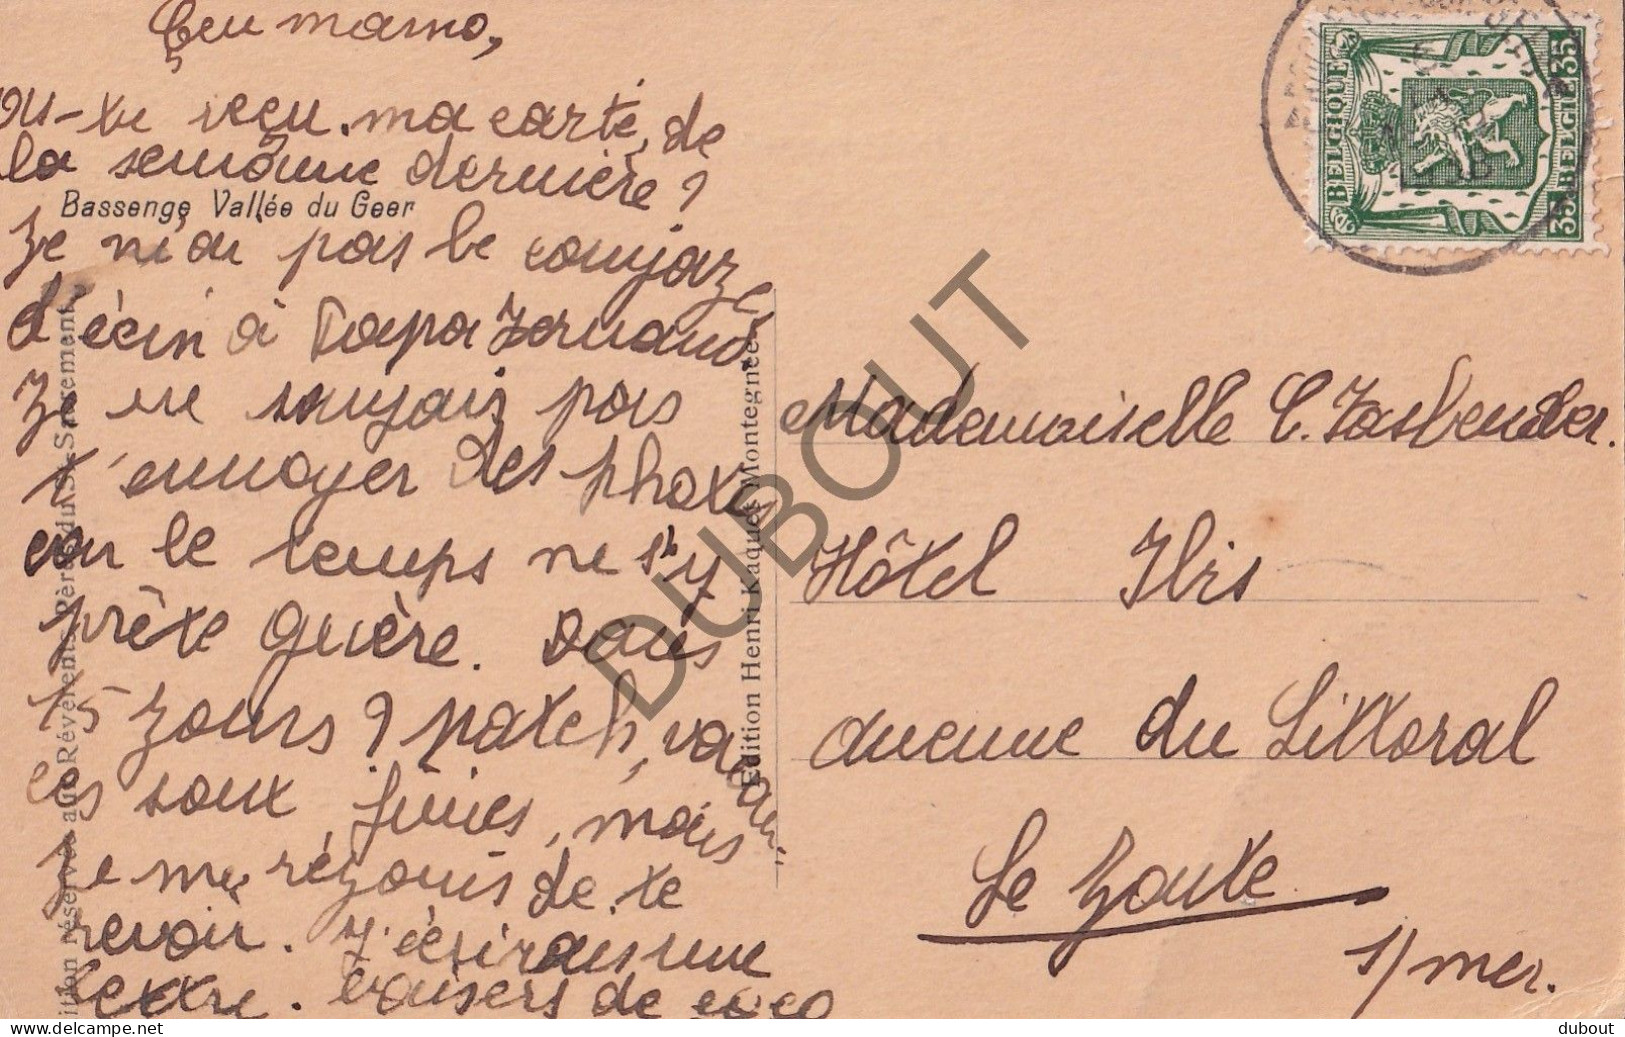 as-tu reçu ma carte de
la semaine dernière ?
Bassenge Vallée du Geer
Je n'ai pas le courage
d'écrir à Papa Fernand.
Je ne saurais pas
t'envoyer des photos
car le temps ne s'y
prête guère. Dans
15 jours ? match, vacan-
ces sont finies, mais
je me réjouis de te
revoir. J'écrirais une
lettre. baisers de coco
Edition réservée aux Révérents Pères du St. Sacrement.
Edition Henri Kaquet Montegnée.
BELGIQUE 35
35 BELGIE
Mademoiselle C. Fasbender.
Hôtel Ibis
avenue du Littoral
Le Zoute
s/mer.
DUBOUT
delcampe.net
dubout